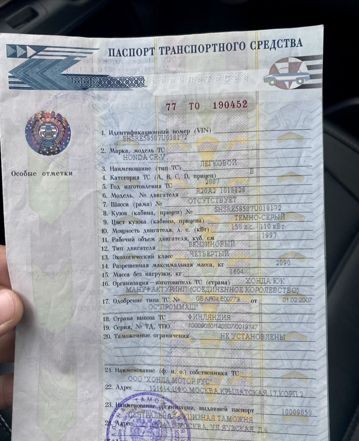 ПАСПОРТ ТРАНСПОРТНОГО СРЕДСТВА
77 ТО 190452
Особые отметки
1. Идентификационный номер (VIN)
2. Марка, модель ТС
HONDA CR-V
ЛЕГКОВОЙ
3. Наименование (тип ТС)
4. Категория ТС (A, B, C, D, прицеп) B
5. Год изготовления ТС 2007
6. Модель, № двигателя R20A2 1018128
7. Шасси (рама) № ОТСУТСТВУЕТ
8. Кузов (кабина, прицеп) №
9. Цвет кузова (кабины, прицепа) ТЕМНО-СЕРЫЙ
10. Мощность двигателя, л. с. (кВт) 150 л.с. 110 кВт
11. Рабочий объем двигателя, куб. см 1997
12. Тип двигателя БЕНЗИНОВЫЙ
13. Экологический класс ЧЕТВЕРТЫЙ
14. Разрешенная максимальная масса, кг 2090
15. Масса без нагрузки, кг 1604
16. Организация - изготовитель ТС (страна) ХОНДА ЮК
МАНУФАКТУРИНГ (СОЕДИНЕННОЕ КОРОЛЕВСТВО)
17. Одобрение типа ТС № от
18. Страна вывоза ТС ФИНЛЯНДИЯ
19. Серия, № ТД, ТПО
20. Таможенные ограничения НЕ УСТАНОВЛЕНЫ
21. Наименование (ф. и. о.) собственника ТС
ООО "ХОНДА МОТОР РУС"
22. Адрес
23. Наименование организации, выдавшей паспорт
24. Адрес